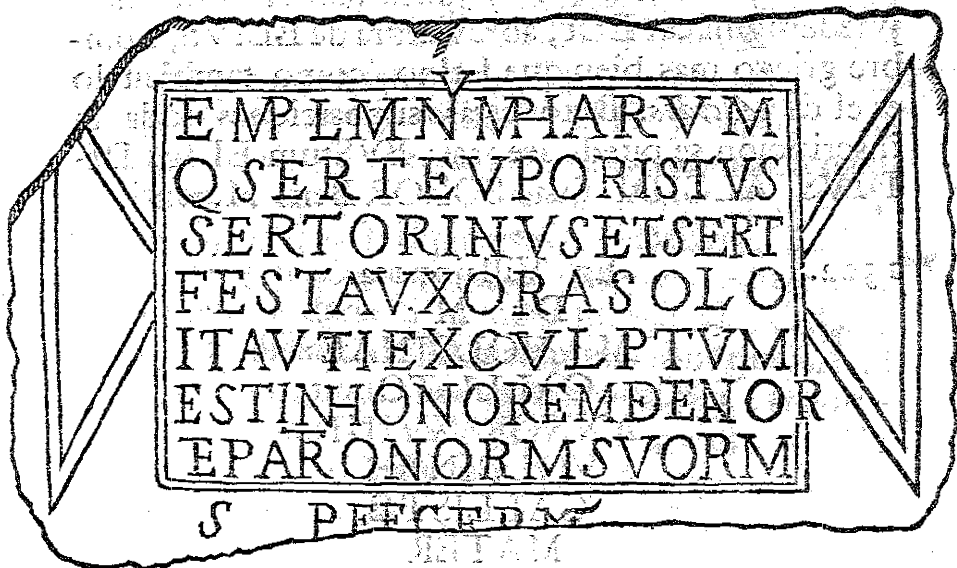 EMPLM NYMPHARVM
Q SERT EVPORISTVS
SERTORINVS ET SERT
FESTA VXOR A SOLO
ITA VTI EXCVLPTVM
EST IN HONOREM EDENOR
EPARONORM SVORM
S P FECER